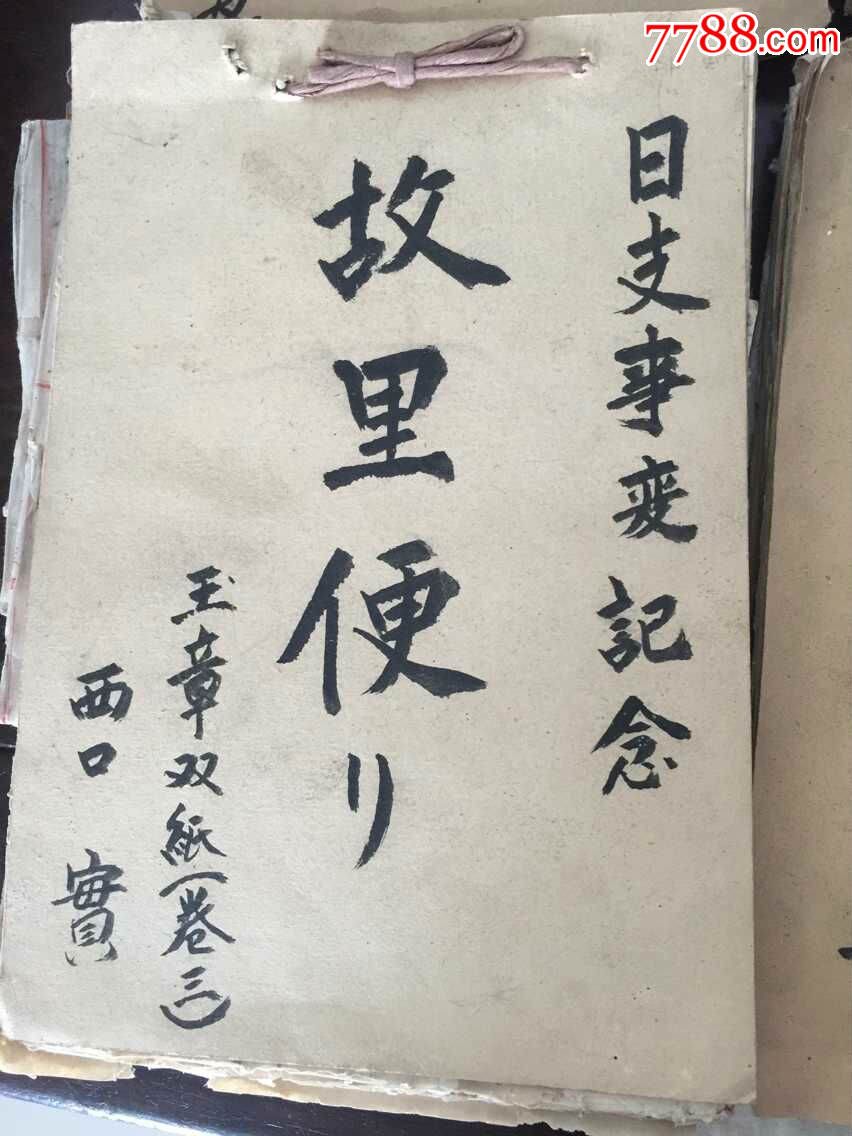 7788.com
日支事変記念
故里便り
玉章双紙(巻三)
西口 實